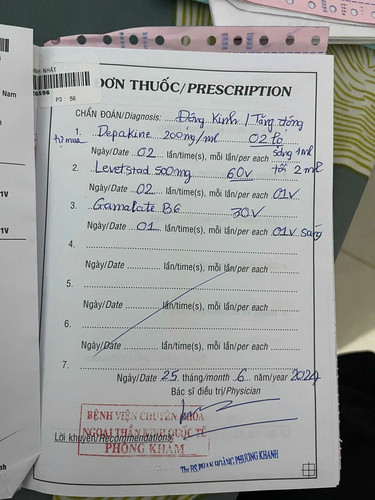 INH NHẬT
Nam
76596
P3: 56
ĐƠN THUỐC/PRESCRIPTION
CHẨN ĐOÁN/Diagnosis: Động Kinh / Tăng động
1. Depakine 200mg/ml 02 lọ
tự mua
Ngày/Date 02 lần/time(s), mỗi lần/per each sáng 1ml
tối 2ml
2. Levetstad 500mg 60v
Ngày/Date 02 lần/time(s), mỗi lần/per each 01v
3. Gamalate B6 30v
Ngày/Date 01 lần/time(s), mỗi lần/per each 01v sáng
4.
Ngày/Date lần/time(s), mỗi lần/per each
5.
Ngày/Date lần/time(s), mỗi lần/per each
6.
Ngày/Date lần/time(s), mỗi lần/per each
7.
Ngày/Date 25 tháng/month 6 năm/year 2024
Bác sĩ điều trị/Physician
BỆNH VIỆN CHUYÊN KHOA
NGOẠI THẦN KINH QUỐC TẾ
PHÒNG KHÁM
Lời khuyên/Recommendations:
Ths.BS. PHAN HOÀNG PHƯƠNG KHANH
1V
1V
nh